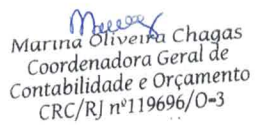 Marina Oliveira Chagas
Coordenadora Geral de
Contabilidade e Orçamento
CRC/RJ nº119696/O-3